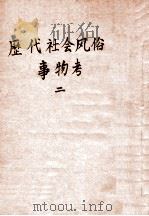 歷代社会风俗
事物考
二